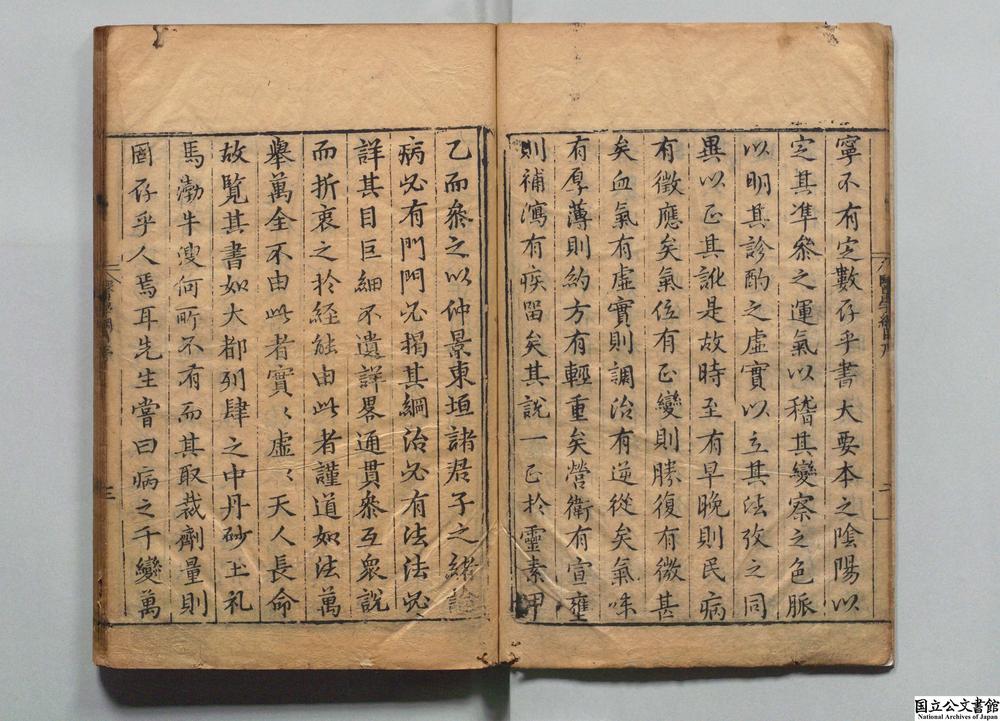 寧不有定數存乎書大要本之陰陽以
定其凖叅之運氣以稽其變察之色脈
以明其診酌之虛實以立其法攷之同
異以正其訛是故時至有早晚則民病
有徵應矣氣位有正變則勝復有微甚
矣血氣有虛實則調治有逆從矣氣味
有厚薄則約方有輕重矣營衛有宣壅
則補瀉有疾留矣其說一正於靈素甲
乙而叅之以仲景東垣諸君子之緒論
病必有門門必揭其綱治必有法法必
詳其目巨細不遺詳畧通貫叅互衆說
而折衷之於經能由此者謹道如法萬
舉萬全不由此者實〻虛〻天人長命
故覽其書如大都列肆之中丹砂玉札
馬渤牛溲何所不有而其取裁劑量則
固存乎人焉耳先生嘗曰病之千變萬
二
三
国立公文書館
National Archives of Japan